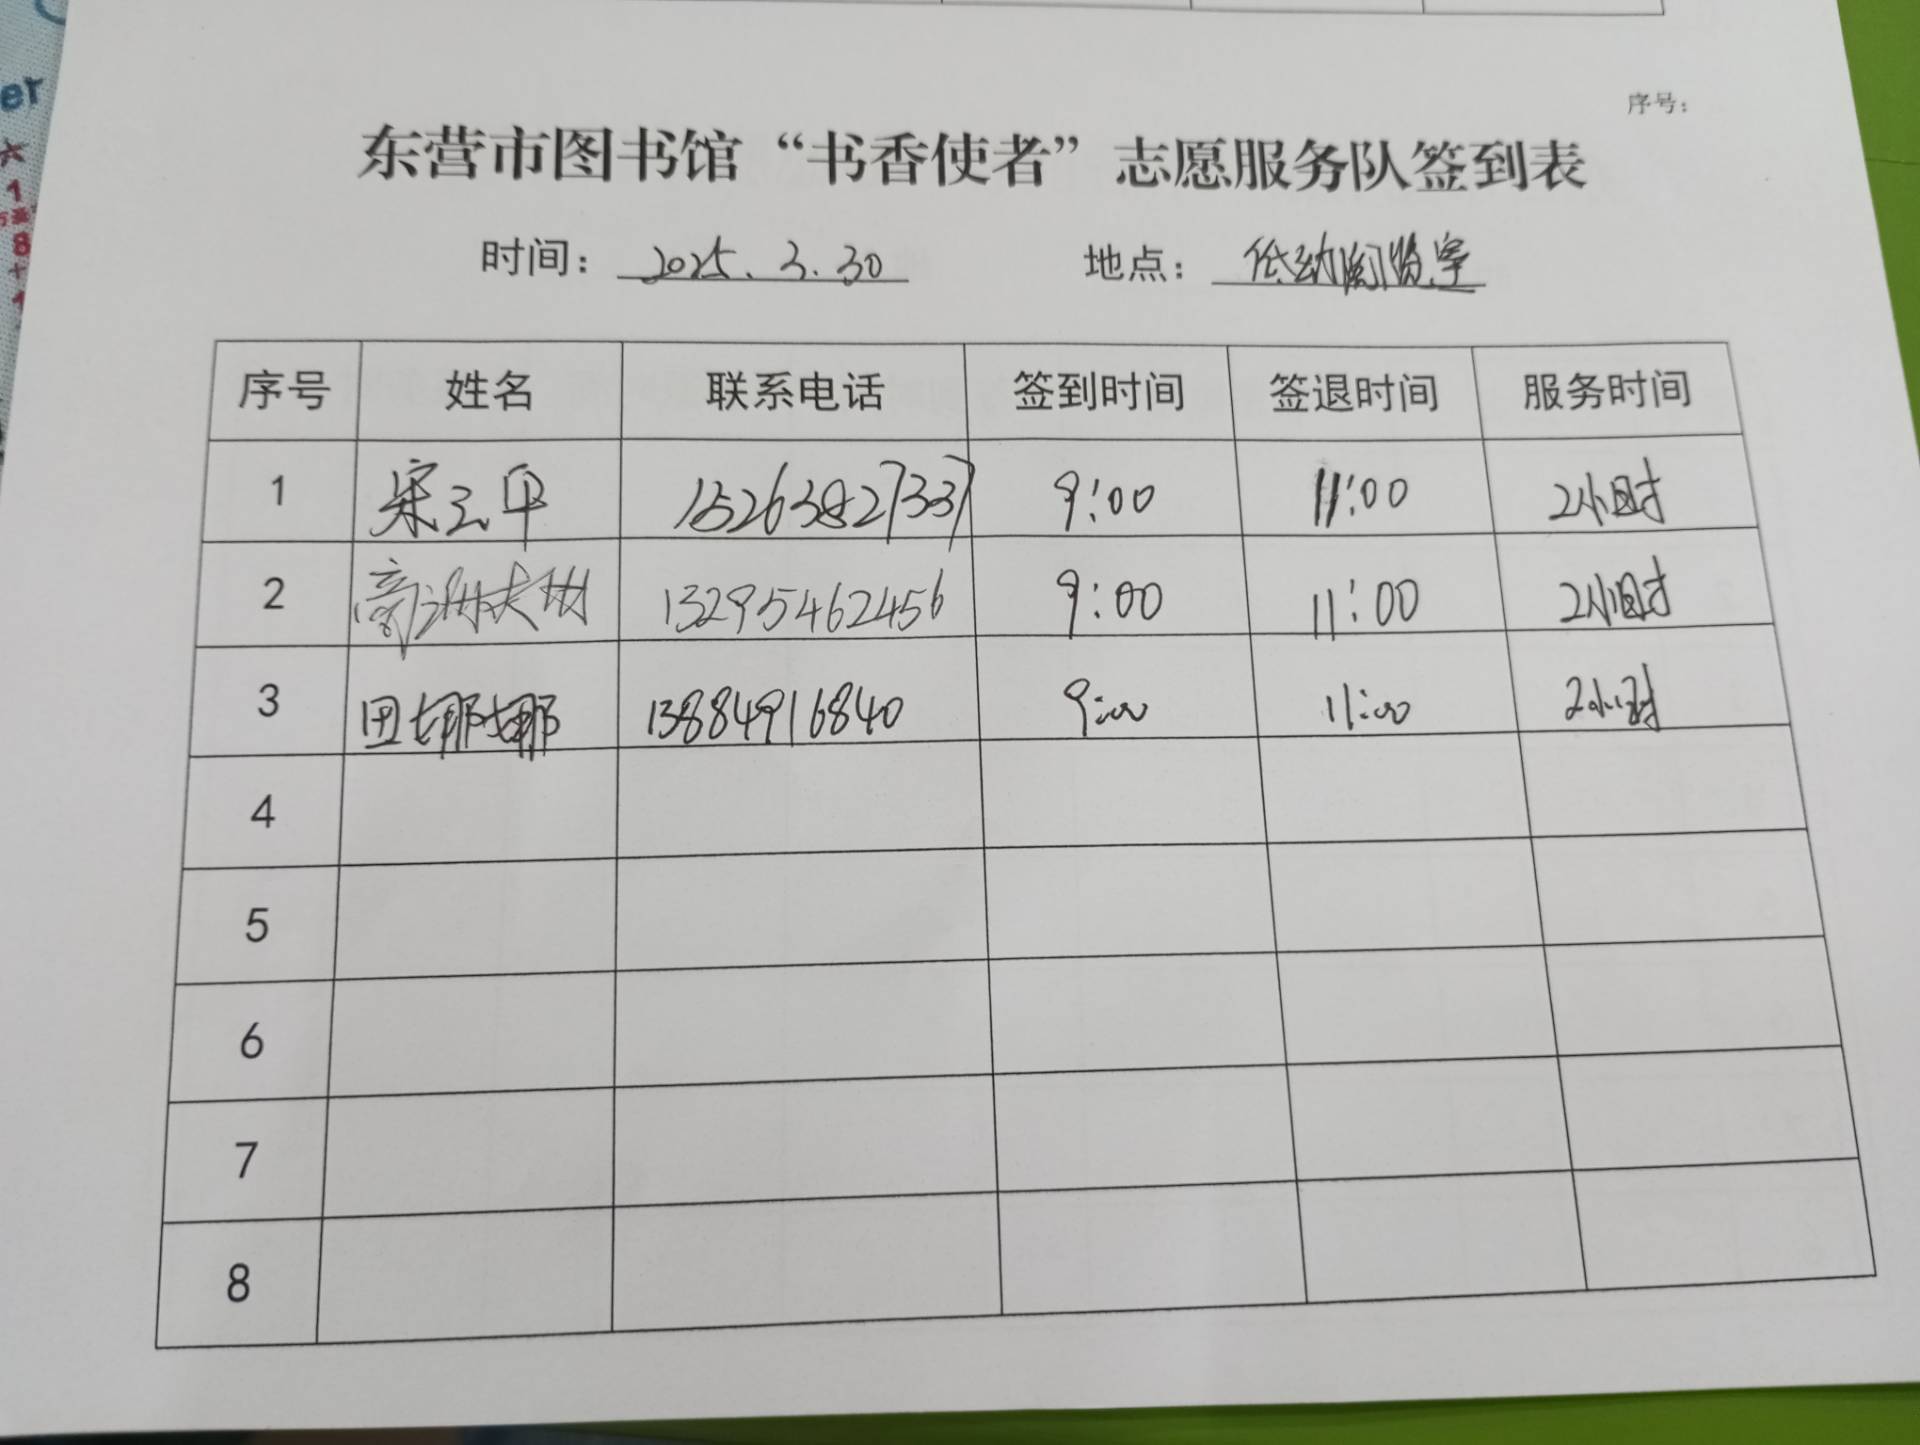 er
六
1
8
十
1
序号：
东营市图书馆“书香使者”志愿服务队签到表
时间： 2025.3.30 地点： 低幼阅览室
序号 姓名 联系电话 签到时间 签退时间 服务时间
1 宋云平 15263827337 9:00 11:00 2小时
2 高 13295462456 9:00 11:00 2小时
3 田娜娜 13884916840 9:00 11:00 2小时
4
5
6
7
8